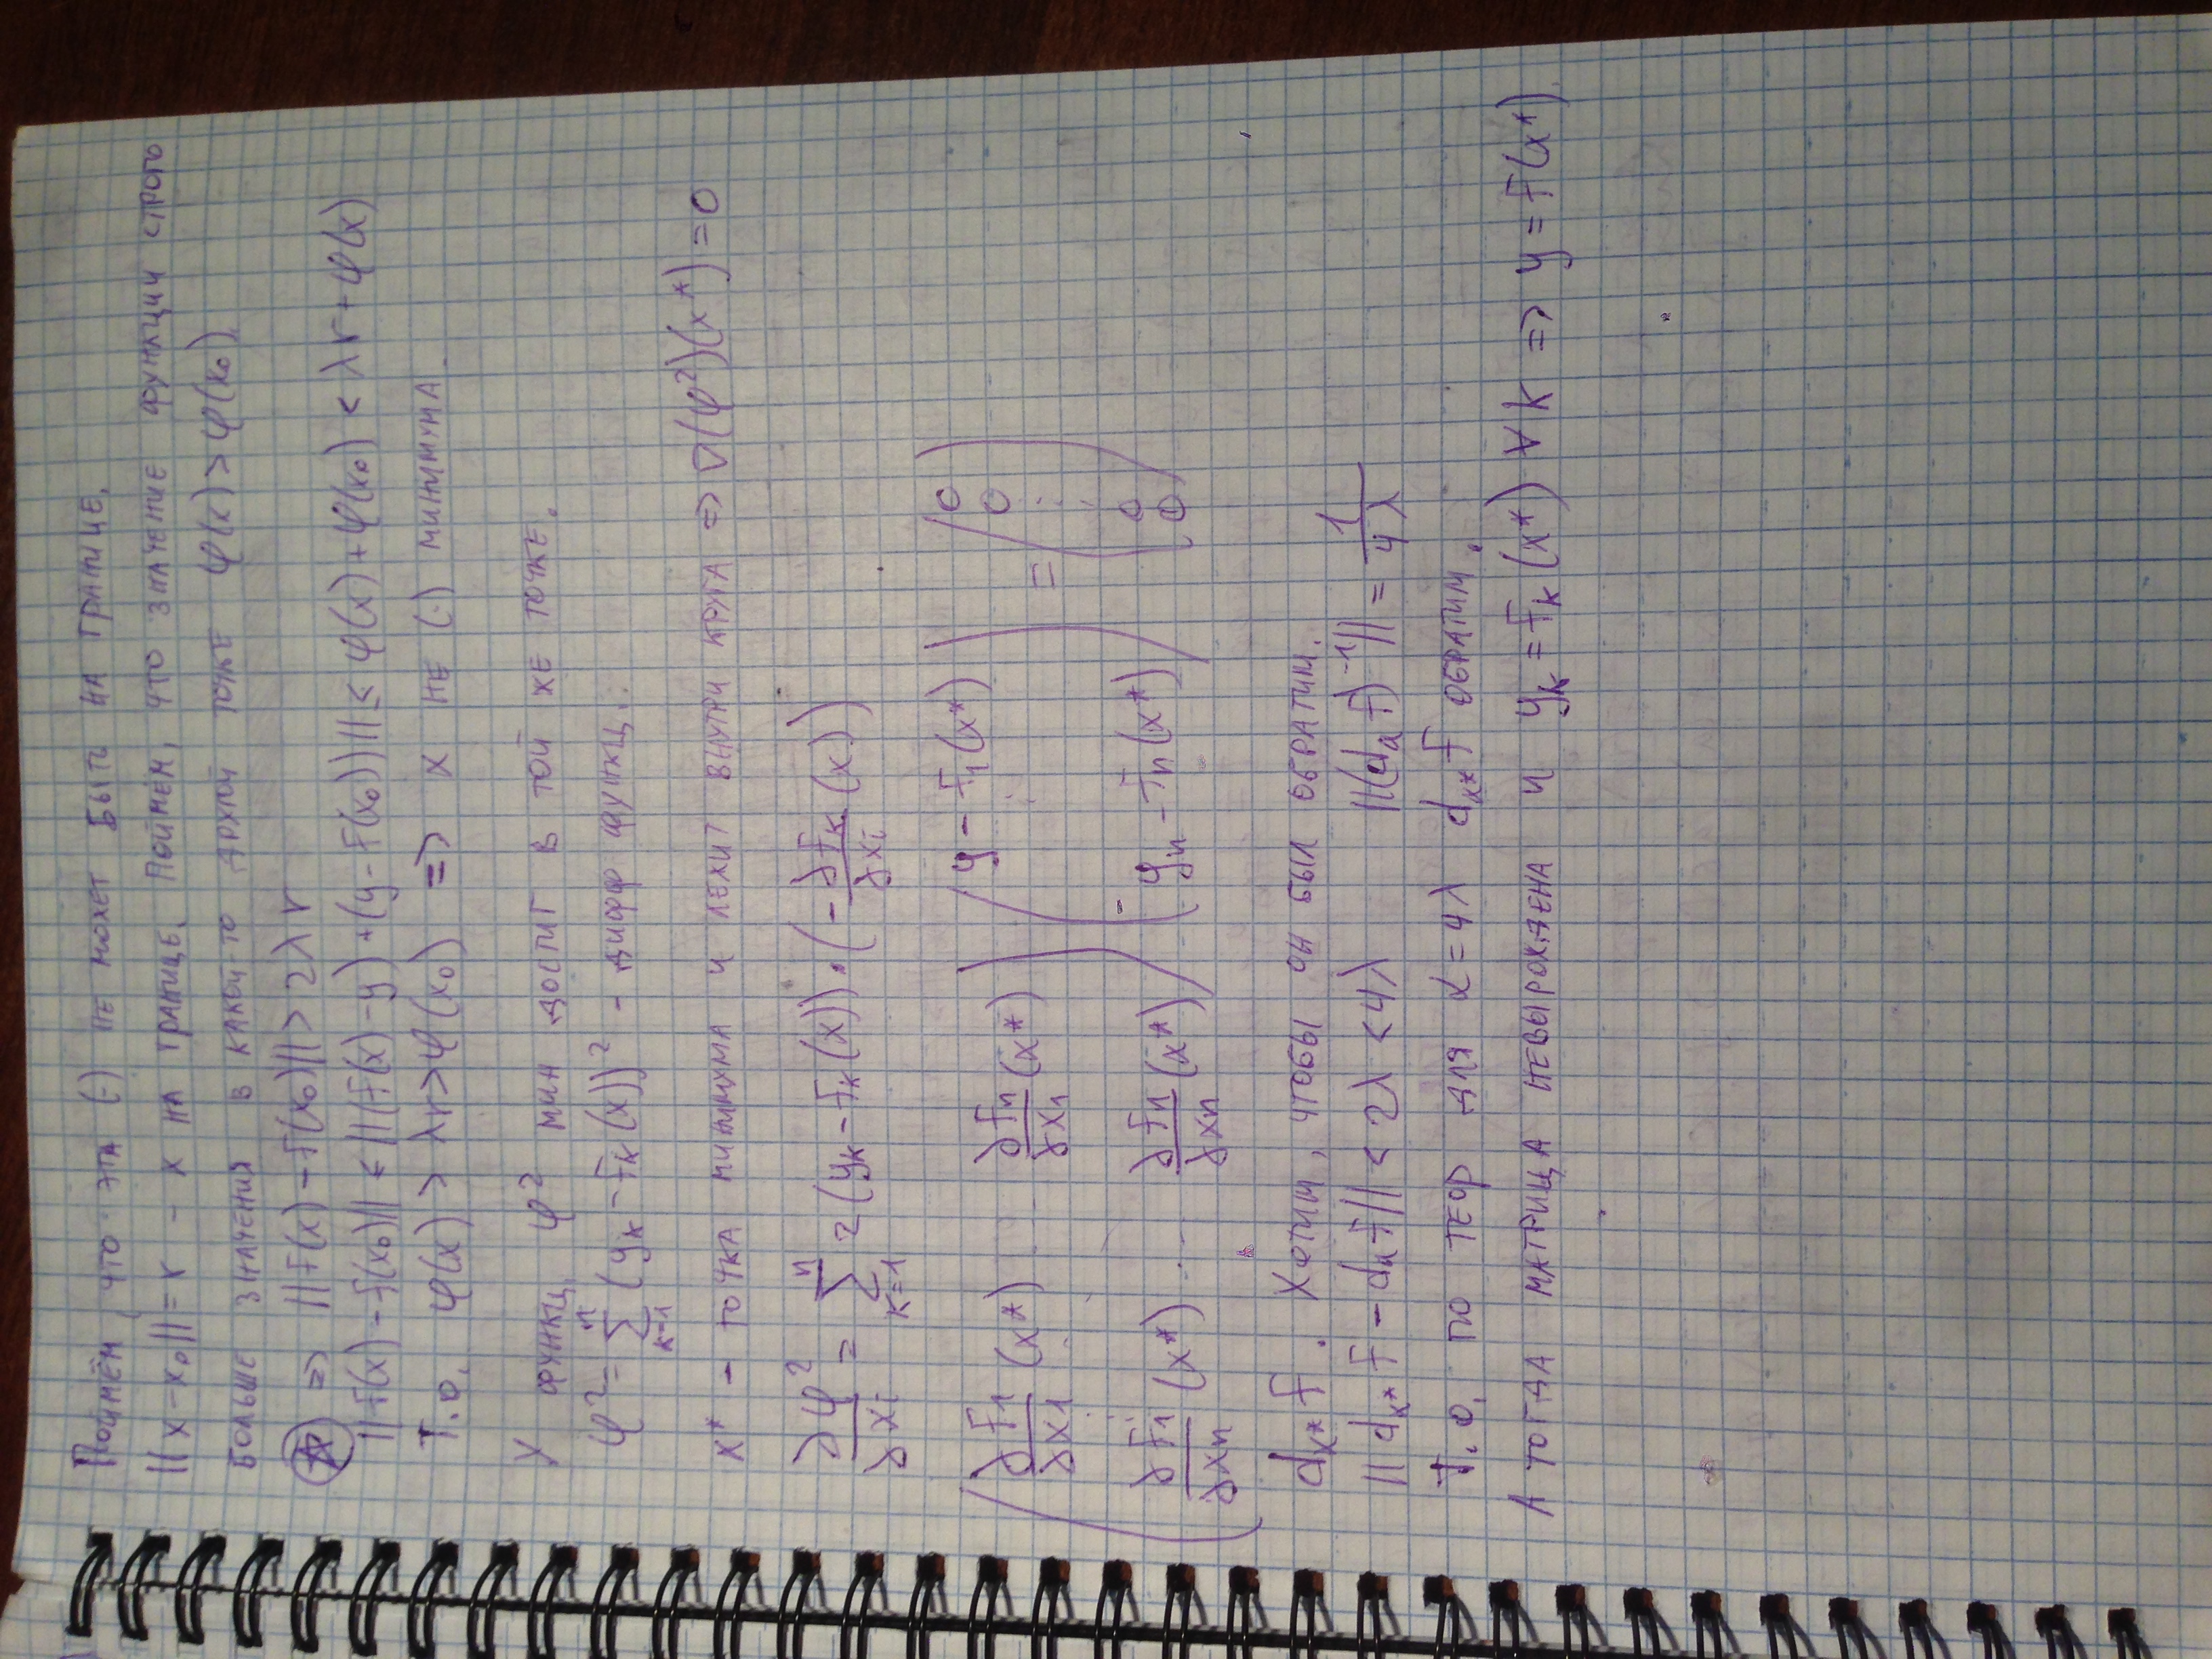 Поймём, что эта (·) не может быть на границе.
||x - x₀|| = r - x на границе. Поймём, что значение функции строго
больше значения в какой-то другой точке φ(x) > φ(x₀).
☆ => ||F(x) - F(x₀)|| > 2λr
||F(x) - F(x₀)|| ≤ ||(F(x) - y) + (y - F(x₀))|| ≤ φ(x) + φ(x₀) < λr + φ(x)
Т.о. φ(x) > λr > φ(x₀) => x не (·) минимума.
У функц. φ² мин достиг в той же точке.
φ² = ∑ₖ₌₁ⁿ (yₖ - Fₖ(x))² - дифф функц.
x* - точка минимума и лежит внутри круга => ∇(φ²)(x*) = 0
∂φ²/∂xᵢ = ∑ₖ₌₁ⁿ 2(yₖ - Fₖ(x)) · (-∂Fₖ/∂xᵢ (x))
( ∂F₁/∂x₁ (x*) ... ∂Fₙ/∂x₁ (x*) ) ( y - F₁(x*) ) = ( 0
0
⋮ ⋮ ⋮
0
∂F₁/∂xₙ (x*) ... ∂Fₙ/∂xₙ (x*) ) ( yₙ - Fₙ(x*) ) 0 )
dₓ*F. Хотим, чтобы он был обратим.
||dₓ*F - dₐF|| < 2λ < 4λ ||(dₐF)⁻¹|| = 1/4λ
Т.о. по теор для α = 4λ dₓ*F обратим.
А тогда матрица невырождена и yₖ = Fₖ(x*) ∀k => y = F(x*).